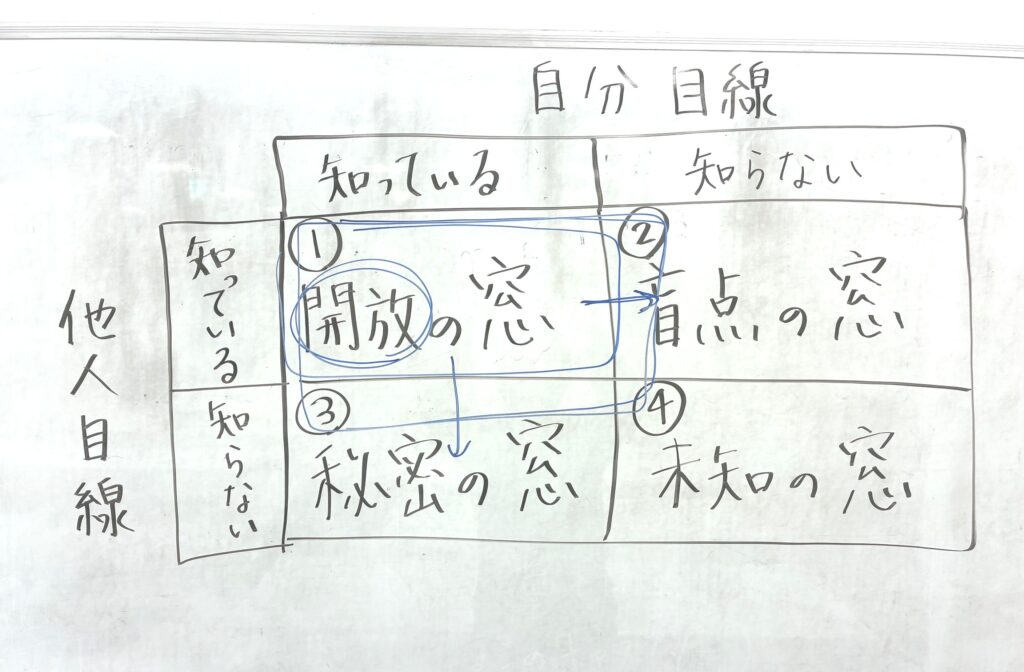 自分 目線
知っている
知らない
他人目線
知っている
①
開放の窓
②
盲点の窓
知らない
③
秘密の窓
④
未知の窓